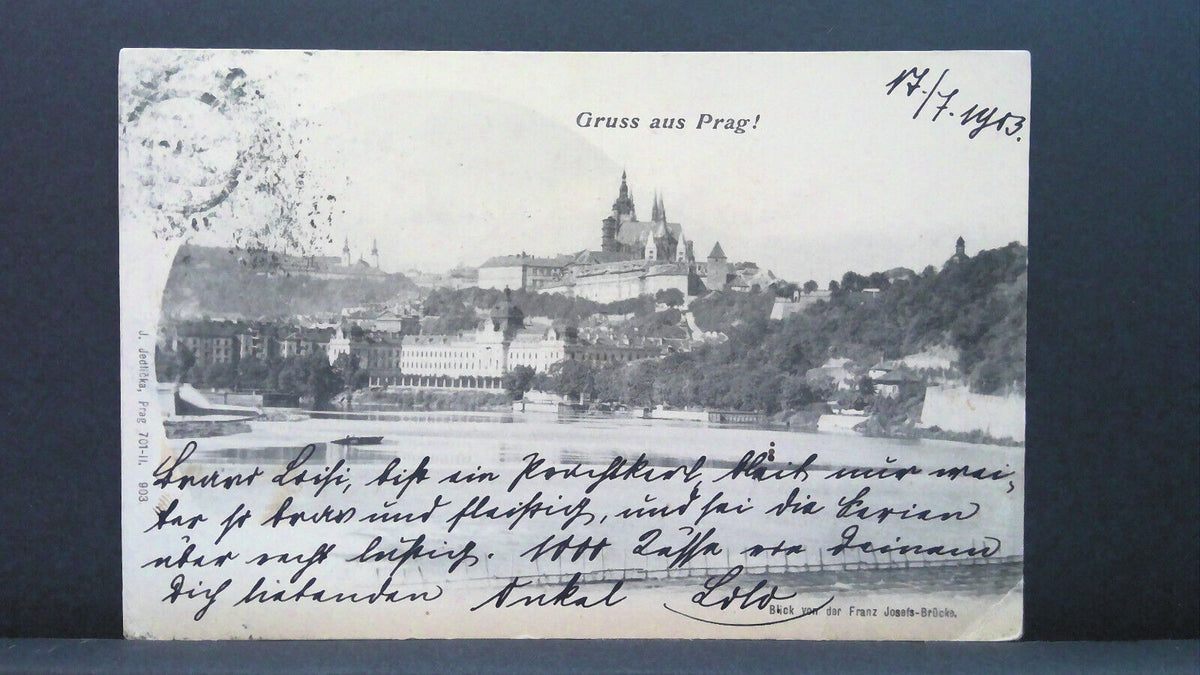 17./7. 1903.
Gruss aus Prag!
J. Jedlička, Prag 701-II. 903
Bravo Loisi, bist ein Prachtkerl, bleib nur wei-
ter so brav und fleissig, und sei die Ferien
über recht lustig. 1000 Küsse von Deinem
Dich liebenden Onkel Lolo
Blick von der Franz Josefs-Brücke.